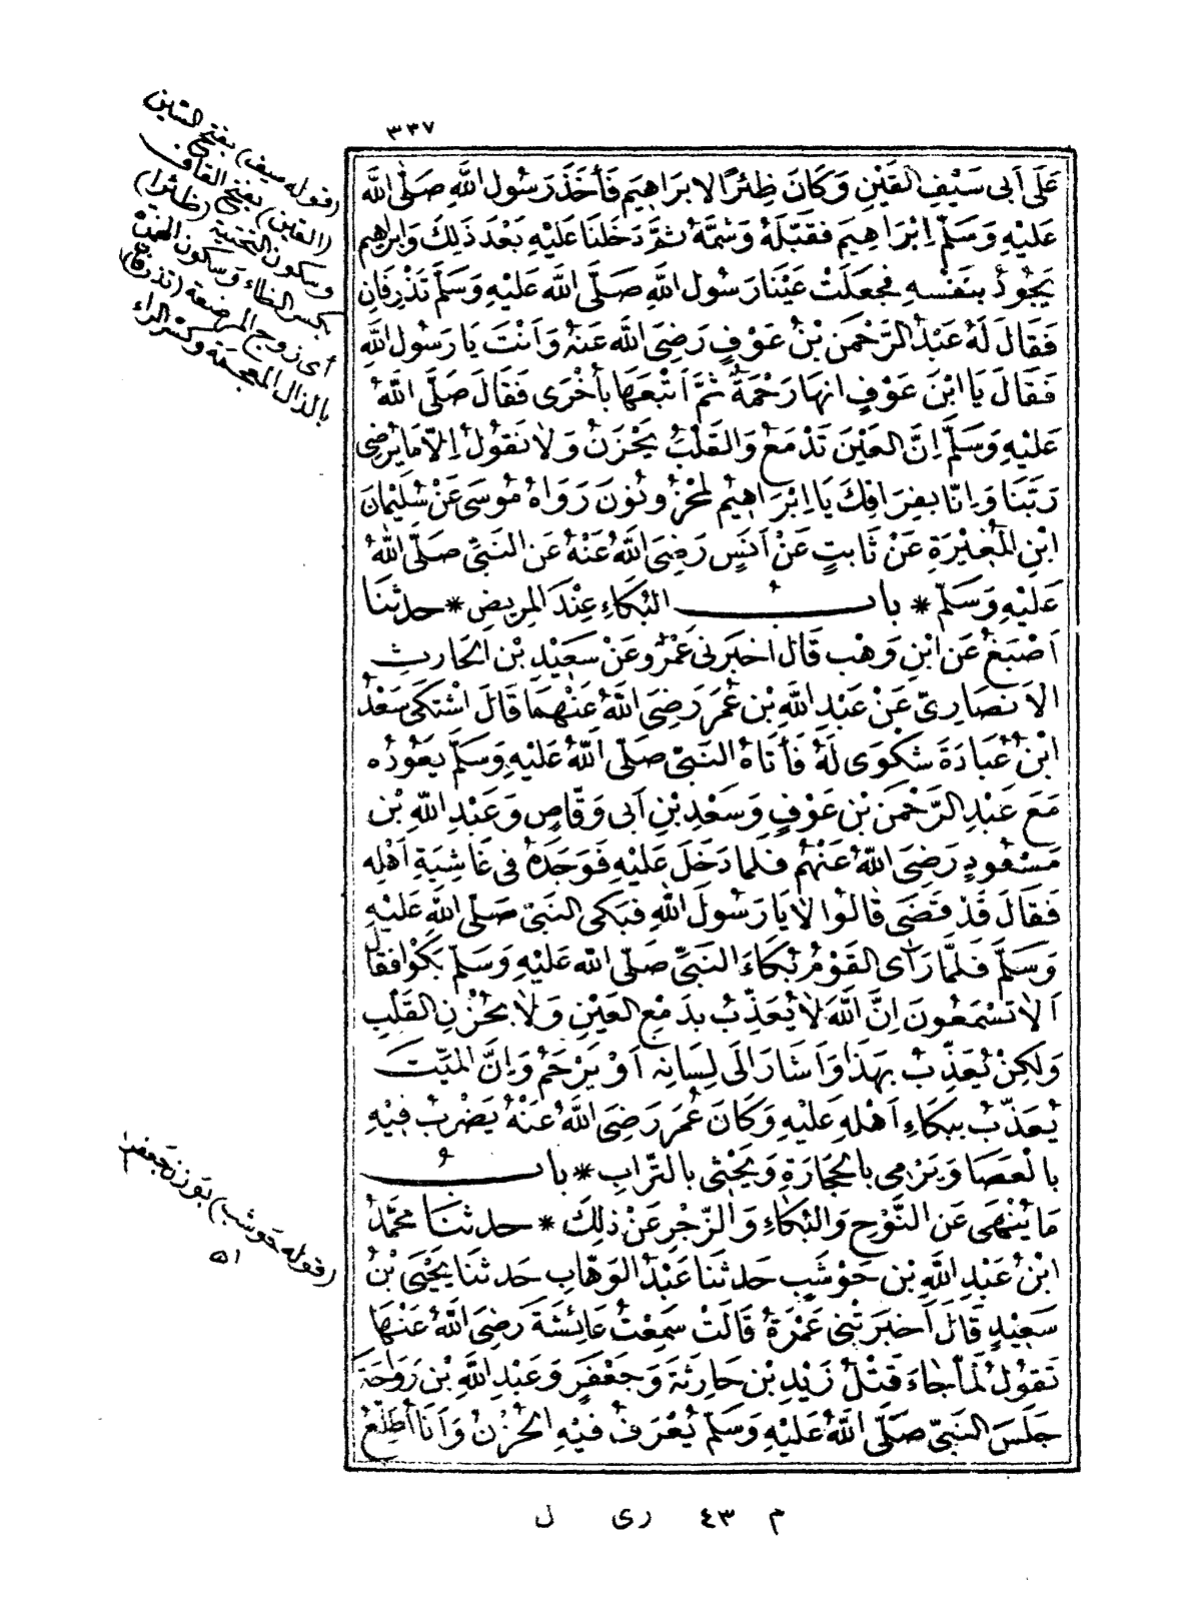 ٣٣٧
عَلَى اَبِى سَيْفٍ القَيْنِ وَكَانَ ظِئْرًا لِابْرَاهِيمَ فَأَخَذَ رَسُولُ اللَّهِ صَلَّى اللَّهُ
عَلَيْهِ وَسَلَّمَ اِبْرَاهِيمَ فَقَبَّلَهُ وَشَمَّهُ ثُمَّ دَخَلْنَا عَلَيْهِ بَعْدَ ذَلِكَ وَاِبْرَاهِيمُ
يَجُودُ بِنَفْسِهِ فَجَعَلَتْ عَيْنَا رَسُولِ اللَّهِ صَلَّى اللَّهُ عَلَيْهِ وَسَلَّمَ تَذْرِفَانِ
فَقَالَ لَهُ عَبْدُ الرَّحْمَنِ بْنُ عَوْفٍ رَضِىَ اللَّهُ عَنْهُ وَاَنْتَ يَا رَسُولَ اللَّهِ
فَقَالَ يَا ابْنَ عَوْفٍ اِنهَا رَحْمَةٌ ثُمَّ اَتْبَعَهَا بِأُخْرَى فَقَالَ صَلَّى اللَّهُ
عَلَيْهِ وَسَلَّمَ اِنَّ العَيْنَ تَدْمَعُ وَالقَلْبُ يَحْزَنُ وَلَا نَقُولُ اِلَّا مَا يَرْضَى
رَبُّنَا وَاِنَّا بِفِرَاقِكَ يَا اِبْرَاهِيمُ لَمَحْزُونُونَ رَوَاهُ مُوسَى عَنْ سُلَيْمَانَ
ابْنِ المُغِيْرَةِ عَنْ ثَابِتٍ عَنْ اَنَسٍ رَضِىَ اللَّهُ عَنْهُ عَنِ النَّبِىِّ صَلَّى اللَّهُ
عَلَيْهِ وَسَلَّمَ * بابُ البُكَاءِ عِنْدَ المَرِيضِ * حدثنَا
اَصْبَغُ عَنِ ابْنِ وَهْبٍ قَالَ اَخْبَرَنِى عَمْرٌو عَنْ سَعِيْدِ بْنِ الحَارِثِ
الاَنْصَارِىِّ عَنْ عَبْدِ اللَّهِ بْنِ عُمَرَ رَضِىَ اللَّهُ عَنْهُمَا قَالَ اشْتَكَى سَعْدُ
ابْنُ عُبَادَةَ شَكْوَى لَهُ فَأَتَاهُ النَّبِىُّ صَلَّى اللَّهُ عَلَيْهِ وَسَلَّمَ يَعُودُه
مَعَ عَبْدِ الرَّحْمَنِ بْنِ عَوْفٍ وَسَعْدِ بْنِ اَبِى وَقَّاصٍ وَعَبْدِ اللَّهِ بْنِ
مَسْعُودٍ رَضِىَ اللَّهُ عَنْهُمْ فَلَمَا دَخَلَ عَلَيْهِ فَوَجَدَهُ فِى غَاشِيَةِ اَهْلِهِ
فَقَالَ قَدْ قَضَى قَالُوا لَا يَا رَسُولَ اللَّهِ فَبَكَى النَّبِىُّ صَلَّى اللَّهُ عَلَيْهِ
وَسَلَّمَ فَلَمَّا رَأَى القَوْمُ بُكَاءَ النَّبِىِّ صَلَّى اللَّهُ عَلَيْهِ وَسَلَّمَ بَكَوْا فقَالَ
اَلَا تَسْمَعُونَ اِنَّ اللَّهَ لَا يُعَذِّبُ بِدَمْعِ العَيْنِ وَلَا بِحُزْنِ القَلْبِ
وَلَكِنْ يُعَذِّبُ بِهَذَا وَاَشَارَ اِلَى لِسَانِهِ اَوْ يَرْحَمُ وَاِنَّ المَيِّتَ
يُعَذَّبُ بِبُكَاءِ اَهْلِهِ عَلَيْهِ وَكَانَ عُمَرُ رَضِىَ اللَّهُ عَنْهُ يَضْرِبُ فِيْهِ
بِالْعَصَا وَيَرْمِى بِالحِجَارَةِ وَيَحْثِى بِالتُّرَابِ * بابُ
مَا يُنْهَى عَنِ النَّوْحِ وَالبُكَاءِ وَالزَّجْرِ عَنْ ذلِكَ * حدثنَا مُحَمَّدُ
ابْنُ عَبْدِ اللَّهِ بْنِ حَوْشَبٍ حَدثنَا عَبْدُ الوَهَّابِ حَدثنَا يَحْيَى بْنُ
سَعِيْدٍ قَالَ اَخْبَرَتْنِى عَمْرَةُ قَالَتْ سَمِعْتُ عَائِشَةَ رَضِىَ اللَّهُ عَنْهَا
تَقُولُ لَمَّا جَاءَ قَتْلُ زَيْدِ بْنِ حَارِثَةَ وَجَعْفَرٍ وَعَبْدِ اللَّهِ بْنِ رَوَاحَةَ
جَلَسَ النَّبِىُّ صَلَّى اللَّهُ عَلَيْهِ وَسَلَّمَ يُعْرَفُ فِيْهِ الحُزْنُ وَاَنَا اَطَّلِعُ
(قوله سيف) بفتح السين
(القين) بفتح القاف
وسكون التحتية (ظئرا)
بكسر الظاء وسكون الهمزة
أى زوج المرضعة (تذرفان)
بالذال المعجمة وكسر الراء
(قوله حوشب) بوزن جعفر
اه
م ٤٣ رى ل